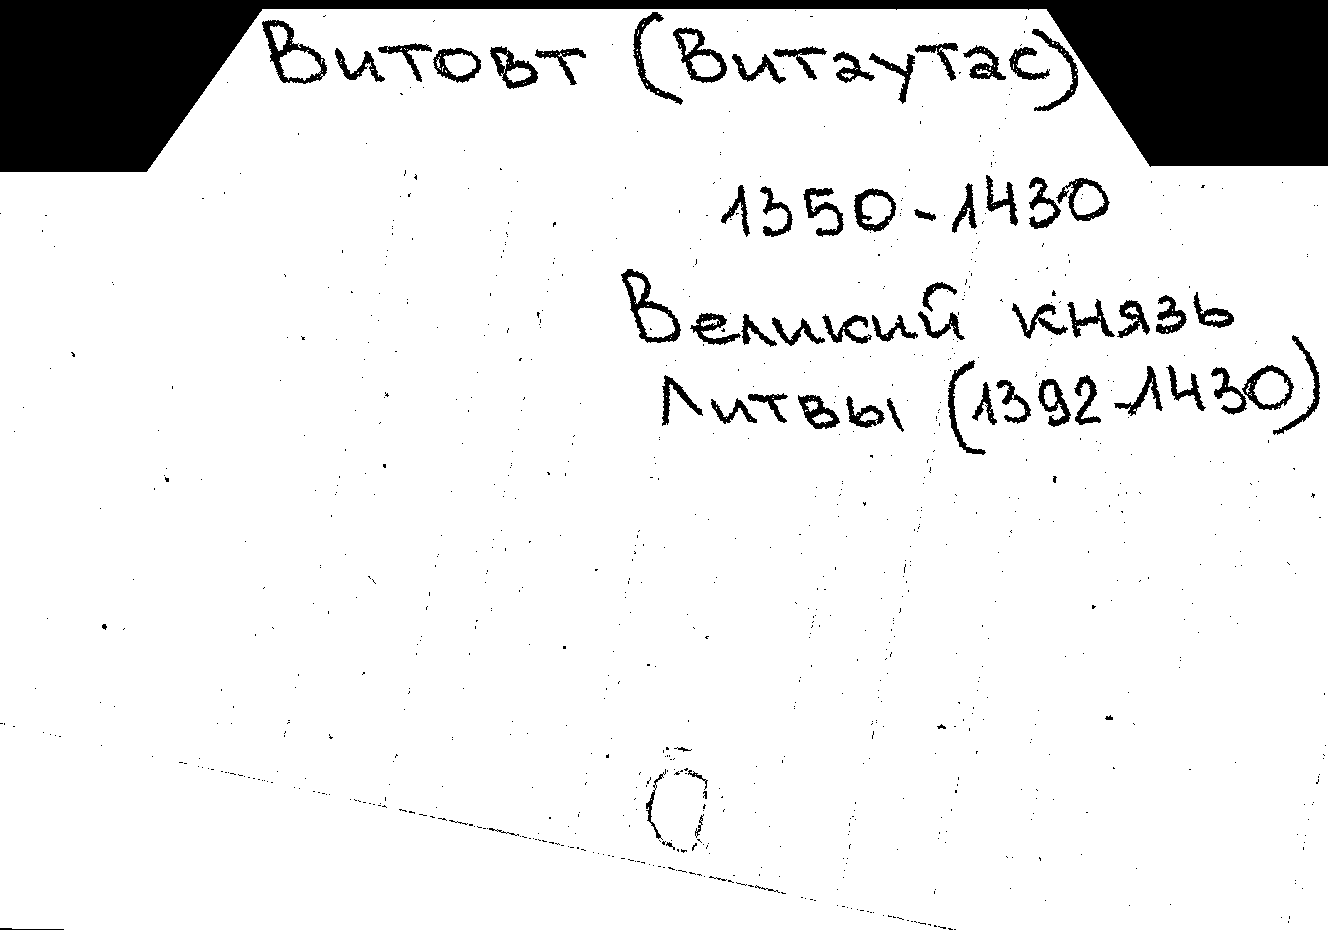 Витовт (Витаутас)
1350-1430
Великий князь
Литвы (1392-1430)